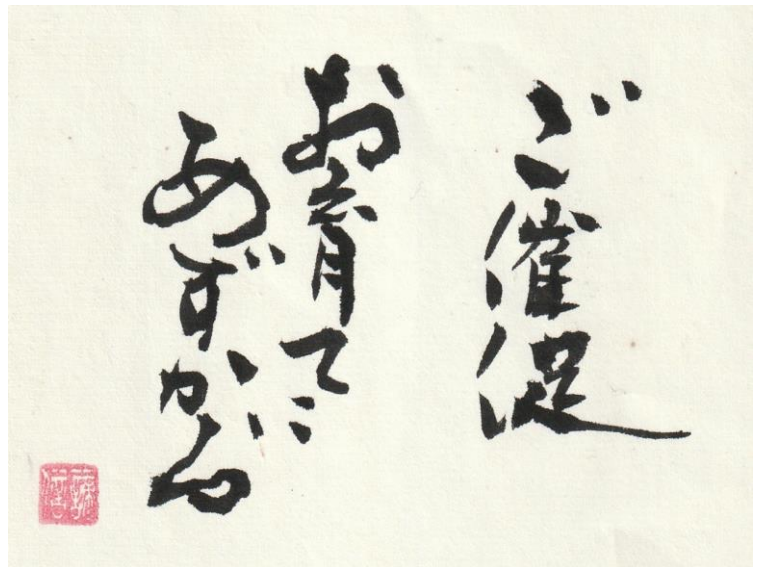 ご催促
お育てに
あずかる